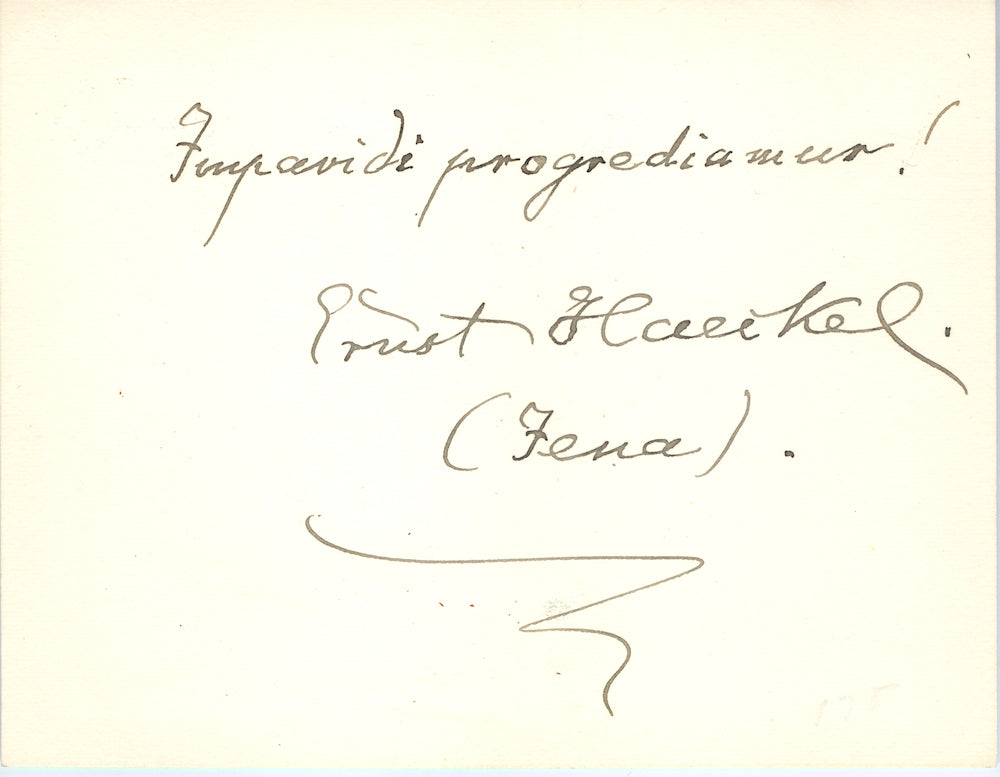 Impavidi progrediamur!
Ernst Haeckel.
(Jena).